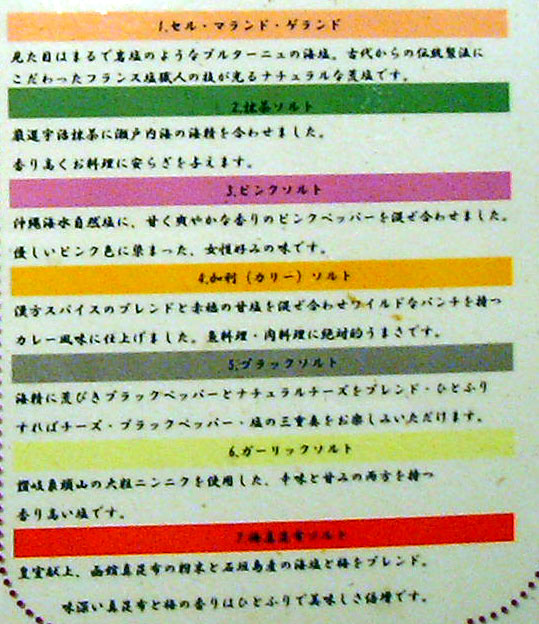 1.セル・マランド・ゲランド
見た目はまるで岩塩のようなブルターニュの海塩。古代からの伝統製法に
こだわったフランス塩職人の技が光るナチュラルな荒塩です。
2.抹茶ソルト
厳選宇治抹茶に瀬戸内海の海精を合わせました。
香り高くお料理に安らぎを与えます。
3.ピンクソルト
沖縄海水自然塩に、甘く爽やかな香りのピンクペッパーを混ぜ合わせました。
優しいピンク色に染まった、女性好みの味です。
4.加利（カリー）ソルト
漢方スパイスのブレンドと赤穂の甘塩を混ぜ合わせワイルドなパンチを持つ
カレー風味に仕上げました。魚料理・肉料理に絶対的うまさです。
5.ブラックソルト
海精に荒びきブラックペッパーとナチュラルチーズをブレンド・ひとふり
すればチーズ・ブラックペッパー・塩の三重奏をお楽しみいただけます。
6.ガーリックソルト
讃岐象頭山の大粒ニンニクを使用した、辛味と甘みの両方を持つ
香り高い塩です。
7.梅真昆布ソルト
皇室献上、函館真昆布の粉末と石垣島産の海塩と梅をブレンド。
味深い真昆布と梅の香りはひとふりで美味しさ倍増です。